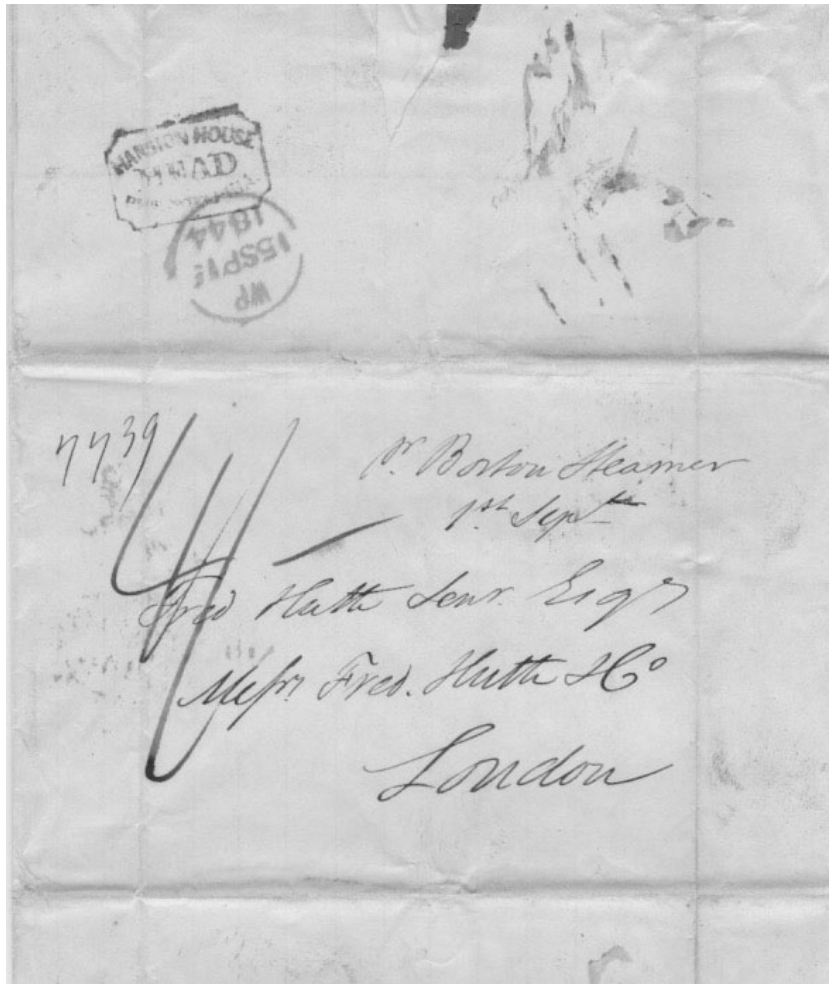 MANSION HOUSE
WP
15SP15
1844
7739
4/-
pr. Boston Steamer
1st Sept
Fred Huth Senr. Esqr
Messrs Fred. Huth & Co
London